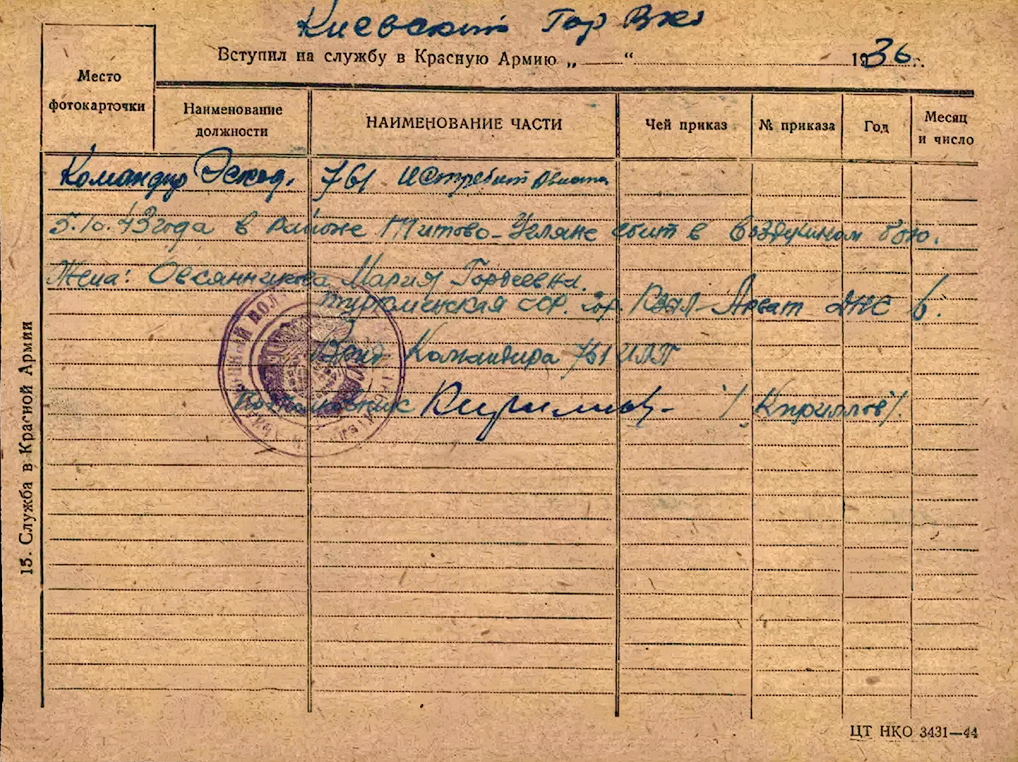 Киевский Гор Вко
Вступил на службу в Красную Армию „ “ 1936 г.
Место фотокарточки
Наименование должности
НАИМЕНОВАНИЕ ЧАСТИ
Чей приказ
№ приказа
Год
Месяц и число
Командир Эскад. 761 Истребит Авиапа
5.10.43 года в районе Титово-Углянс сбит в воздушном бою.
Жена: Овсянникова Мария Гордеевна.
Туркменская ССР. гор. Кзыл-Арват ДНС 6.
Врид Командира 761 ИАП
Подполковник /Кириллов/.
15. Служба в Красной Армии
ЦТ НКО 3431—44